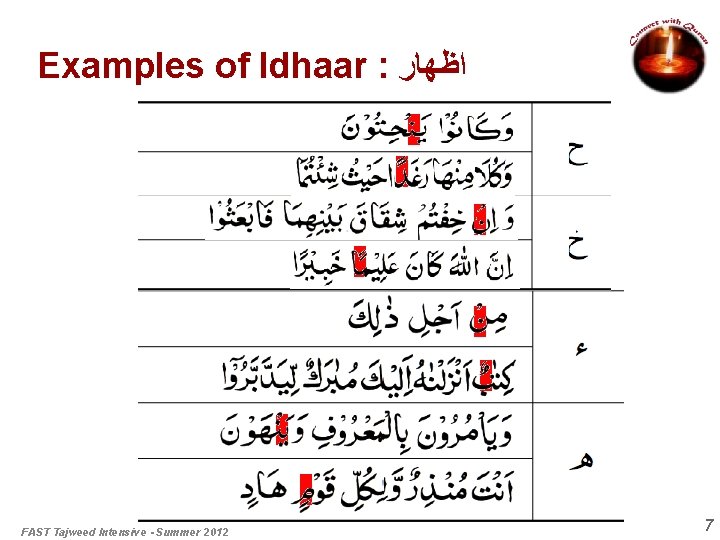 Connect with Quran
Examples of Idhaar : اظهار
ح
وَكَانُوْا يَنْحِتُوْنَ
وَكُلَا مِنْهَا رَغَدًا حَيْثُ شِئْتُمَا
خ
وَ اِنْ خِفْتُمْ شِقَاقَ بَيْنِهِمَا فَابْعَثُوْا
اِنَّ اللّٰهَ كَانَ عَلِيْمًا خَبِيْرًا
ء
مِنْ اَجْلِ ذٰلِكَ
كِتٰبٌ اَنْزَلْنٰهُ اِلَيْكَ مُبٰرَكٌ لِّيَدَّبَّرُوْٓا
ه
وَيَاْمُرُوْنَ بِالْمَعْرُوْفِ وَيَنْهَوْنَ
اَنْتَ مُنْذِرٌ وَّلِكُلِّ قَوْمٍ هَادٍ
FAST Tajweed Intensive - Summer 2012
7